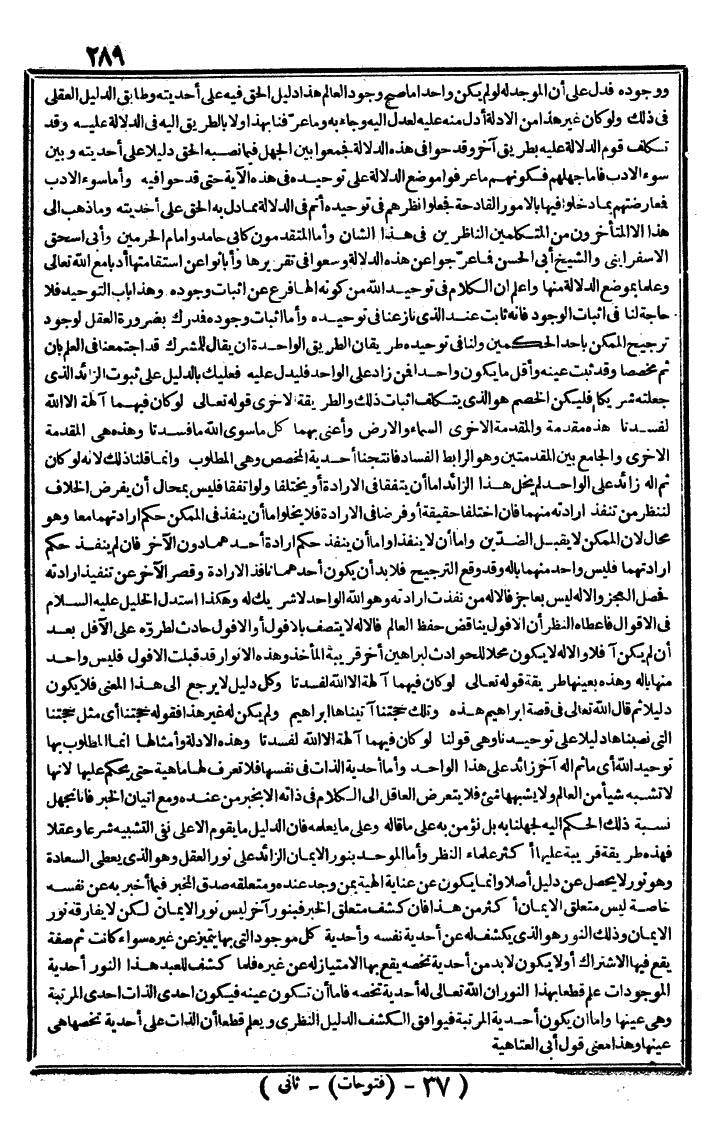 ٢٨٩
ووجوده فدل على أن الموجد له لو لم يكن واحدا ما صح وجود العالم هذا دليل الحق فيه على أحديته وطابق الدليل العقلى
فى ذلك ولو كان غير هذا من الادلة أدل منه عليه لعدل اليه وجاء به وما عرّفنا بهذا ولا بالطريق اليه فى الدلالة عليه وقد
تكلف قوم الدلالة عليه بطريق آخر وقدحوا فى هذه الدلالة فجمعوا بين الجهل فيما نصبه الحق دليلا على أحديته وبين
سوء الادب فاما جهلهم فكونهم ما عرفوا موضع الدلالة على توحيده فى هذه الآية حتى قدحوا فيه وأما سوء الادب
فمعارضتهم بما دخلوا فيها بالامور القادحة فجعلوا نظرهم فى توحيده أتم فى الدلالة مما دل به الحق على أحديته وما ذهب الى
هذا الا المتأخرون من المتكلمين الناظرين فى هذا الشان وأما المتقدمون كابى حامد وامام الحرمين وأبى اسحق
الاسفراينى والشيخ أبى الحسن فما عرّجوا عن هذه الدلالة وسعوا فى تقريرها وأبانوا عن استقامتها أدبا مع الله تعالى
وعلما بموضع الدلالة منها واعلم ان الكلام فى توحيد الله من كونه الها فرع عن اثبات وجوده وهذا باب التوحيد فلا
حاجة لنا فى اثبات الوجود فانه ثابت عند الذى نازعنا فى توحيده وأما اثبات وجوده فدرك بضرورة العقل لوجود
ترجيح الممكن باحد الحكمين ولنا فى توحيده طريقان الطريق الواحدة ان يقال للمشرك قد اجتمعنا فى العلم بان
ثم مخصصا وقد ثبت عينه وأقل ما يكون واحدا فمن زاد على الواحد فليدل عليه فعليك بالدليل على ثبوت الزائد الذى
جعلته شريكا فليكن الخصم هو الذى يتكلف اثبات ذلك والطريقة الاخرى قوله تعالى لو كان فيهما آلهة الا الله
لفسدتا هذه مقدمة والمقدمة الاخرى السماء والارض وأعنى بهما كل ما سوى الله ما فسدتا وهذه هى المقدمة
الاخرى والجامع بين المقدمتين وهو الرابط الفساد فانتجنا أحدية المخصص وهى المطلوب وانما قلنا ذلك لانه لو كان
ثم اله زائد على الواحد لم يخل هذا الزائد اما أن يتفقا فى الارادة أو يختلفا ولو اتفقا فليس بمحال أن يفرض الخلاف
لننظر من تنفذ ارادته منهما فان اختلفا حقيقة أو فرضا فى الارادة فلا يخلو اما أن ينفذ فى الممكن حكم ارادتهما معا وهو
محال لان الممكن لا يقبل الضدّين واما أن لا ينفذا واما أن ينفذ حكم ارادة أحدهما دون الآخر فان لم ينفذ حكم
ارادتهما فليس واحد منهما باله وقد وقع الترجيح فلا بد أن يكون أحدهما نافذ الارادة وقصر الآخر عن تنفيذ ارادته
فحصل العجز والاله ليس بعاجز فالاله من نفذت ارادته وهو الله الواحد لا شريك له وهكذا استدل الخليل عليه السلام
فى الاقوال فاعطاه النظر أن الافول يناقض حفظ العالم فالاله لا يتصف بالافول أو الافول حادث لطروّه على الآفل بعد
أن لم يكن آفلا والاله لا يكون محلا للحوادث لبراهين أخر قريبة المأخذ وهذه الانوار قد قبلت الافول فليس واحد
منها باله وهذه بعينها طريقة قوله تعالى لو كان فيهما آلهة الا الله لفسدتا وكل دليل لا يرجع الى هذا المعنى فلا يكون
دليلا ثم قال الله تعالى فى قصة ابراهيم هذه وتلك حجتنا آتيناها ابراهيم ولم يكن له غير هذا فقوله حجتنا أى مثل حجتنا
التى نصبناها دليلا على توحيدنا وهى قولنا لو كان فيهما آلهة الا الله لفسدتا وهذه الادلة وأمثالها انما المطلوب بها
توحيد الله أى ما ثم اله آخر زائد على هذا الواحد وأما أحدية الذات فى نفسها فلا تعرف لها ماهية حتى يحكم عليها لانها
لا تشبه شيأ من العالم ولا يشبهها شئ فلا يتعرض العاقل الى الكلام فى ذاته الا بخبر من عنده ومع اتيان الخبر فانا نجهل
نسبة ذلك الحكم اليه لجهلنا به بل نؤمن به على ما قاله وعلى ما يعلمه فان الدليل ما يقوم الا على نفى التشبيه شرعا وعقلا
فهذه طريقة قريبة عليها أكثر علماء النظر وأما الموحد بنور الايمان الزائد على نور العقل وهو الذى يعطى السعادة
وهو نور لا يحصل عن دليل أصلا وانما يكون عن عناية الهية بمن وجد عنده ومتعلقه صدق المخبر فيما أخبر به عن نفسه
خاصة ليس متعلق الايمان أكثر من هذا فان كشف متعلق الخبر فبنور آخر ليس نور الايمان لكن لا يفارقه نور
الايمان وذلك النور هو الذى يكشف له عن أحدية نفسه وأحدية كل موجود التى بها يتميز عن غيره سواء كانت ثم صفة
يقع فيها الاشتراك أو لا يكون لا بد من أحدية تخصه يقع بها الامتياز له عن غيره فلما كشف للعبد هذا النور أحدية
الموجودات علم قطعا بهذا النور ان الله تعالى له أحدية تخصه فاما أن تكون عينه فيكون احدى الذات احدى المرتبة
وهى عينها واما ان يكون أحدية المرتبة فيوافق الكشف الدليل النظرى ويعلم قطعا أن الذات على أحدية تخصها هى
عينها وهذا معنى قول أبى العتاهية
( ٣٧ - (فتوحات) - ثانى )